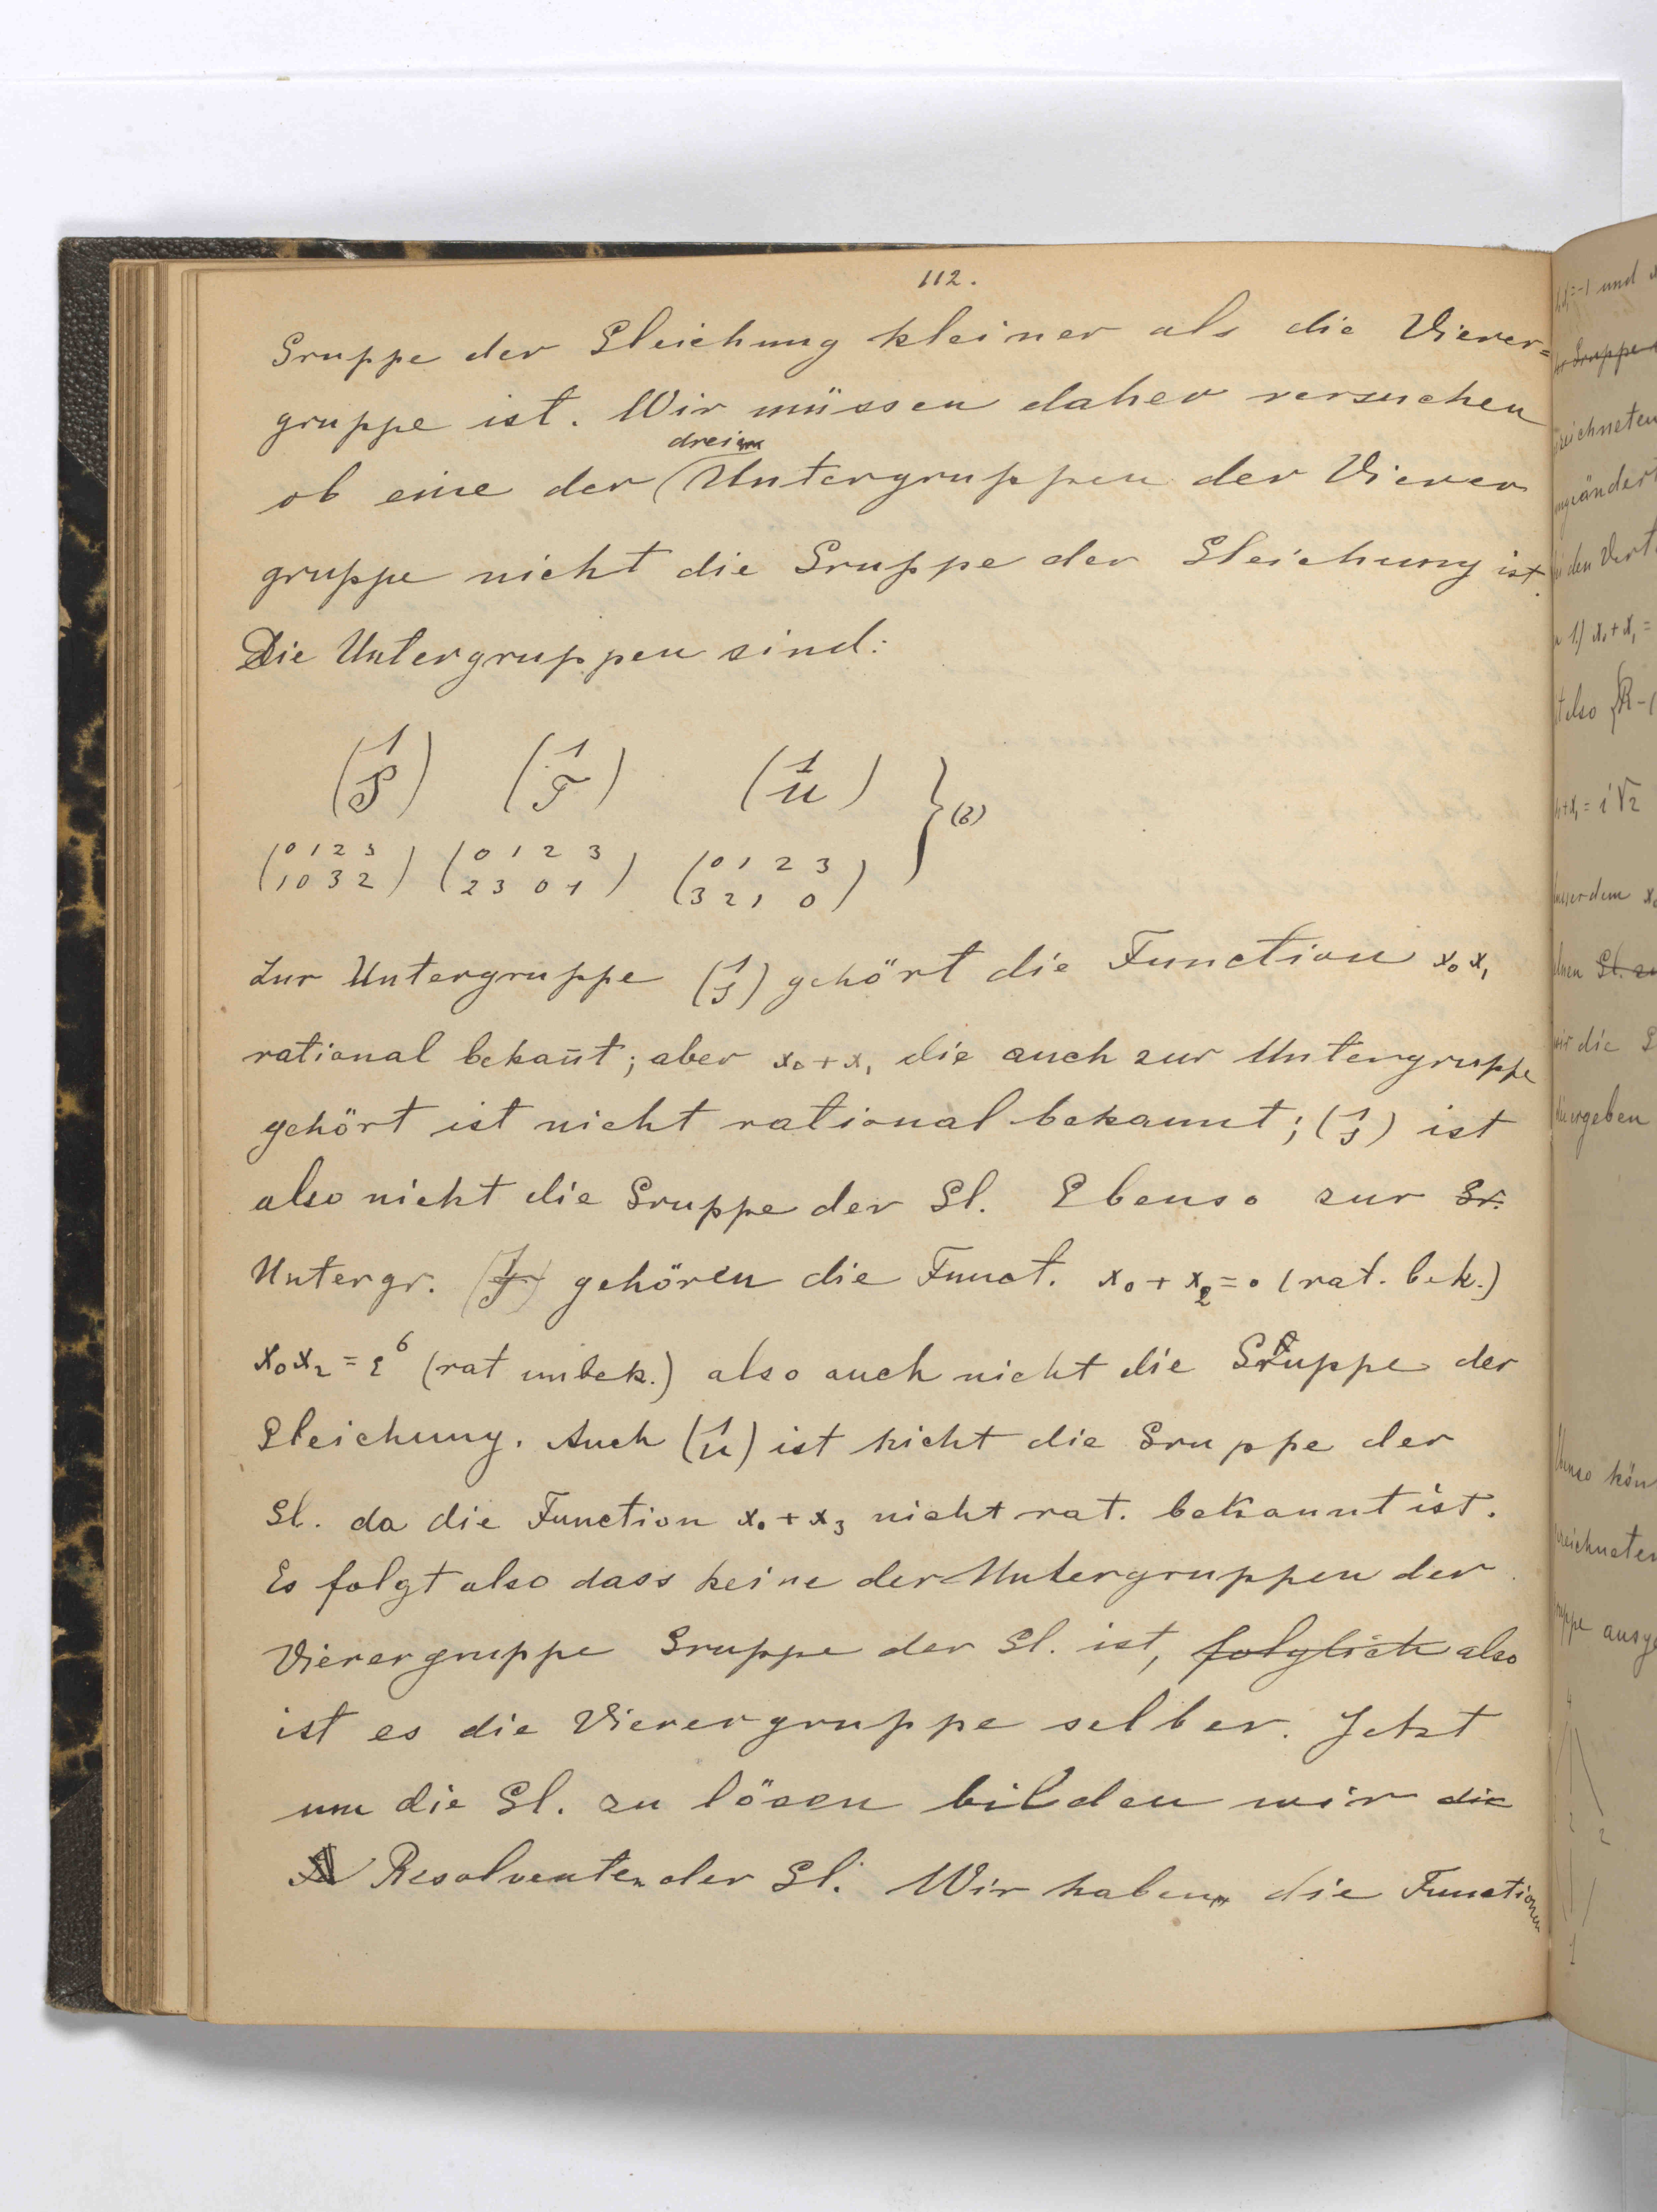 112.
Gruppe der Gleichung kleiner als die Vierer=
gruppe ist. Wir müssen daher versuchen
drei
ob eine der Untergruppen der Vierer
gruppe nicht die Gruppe der Gleichung ist.
Die Untergruppen sind:
(1 S) (1 T) (1 U) } (6)
(0 1 2 3
1 0 3 2) (0 1 2 3
2 3 0 1) (0 1 2 3
3 2 1 0)
Zur Untergruppe (1 S) gehört die Function x₀x₁
rational bekan̄t; aber x₀+x₁ die auch zur Untergruppe
gehört ist nicht rational bekannt; (1 S) ist
also nicht die Gruppe der Gl. Ebenso zur Gr.
Untergr. (1 T) gehören die Funct. x₀+x₂=0 (rat. bek.)
x₀x₂=ε⁶ (rat unbek.) also auch nicht die Gruppe der
Gleichung. Auch (1 U) ist nicht die Gruppe der
Gl. da die Function x₀+x₃ nicht rat. bekannt ist.
Es folgt also dass keine der Untergruppen der
Vierergruppe Gruppe der Gl. ist, folglich also
ist es die Vierergruppe selber. Jetzt
um die Gl. zu lösen bilden wir die
Resolventen der Gl. Wir haben die Functionen
=-1 und
Gruppe
zeichneten
geändert
den Vert
1) x₀+x₁=
also
x₀+x₁ = i√2
ausserdem
Gl.
wir die
ergeben
Ebenso kön
zeichneten
ausge
4
2 2
1